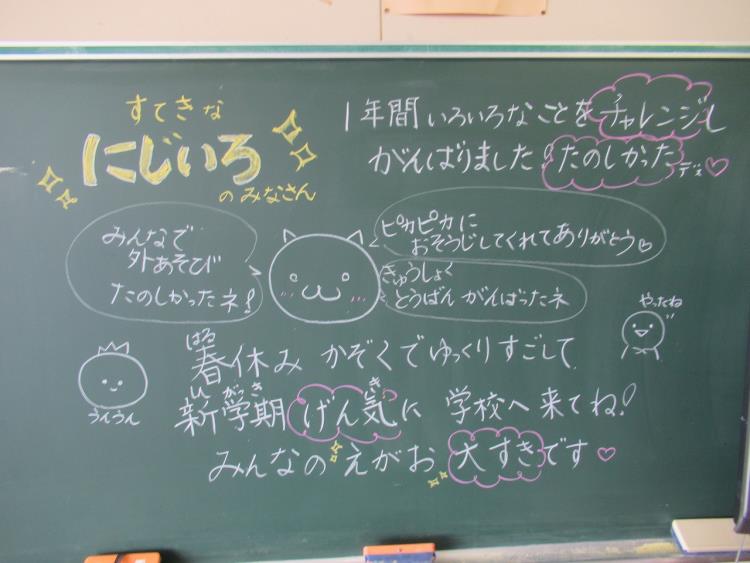 すてきな
にじいろ
のみなさん
1年間いろいろなことをチャレンジし
がんばりました!たのしかったデス♡
みんなで
外あそび
たのしかったネ!
ピカピカに
おそうじしてくれてありがとう♡
きゅうしょく
とうばん がんばったネ
やったね
うんうん
はる
春休み かぞくでゆっくりすごして
しん がっき き
新学期 げん気に 学校へ来てね!
みんなのえがお 大すきです♡